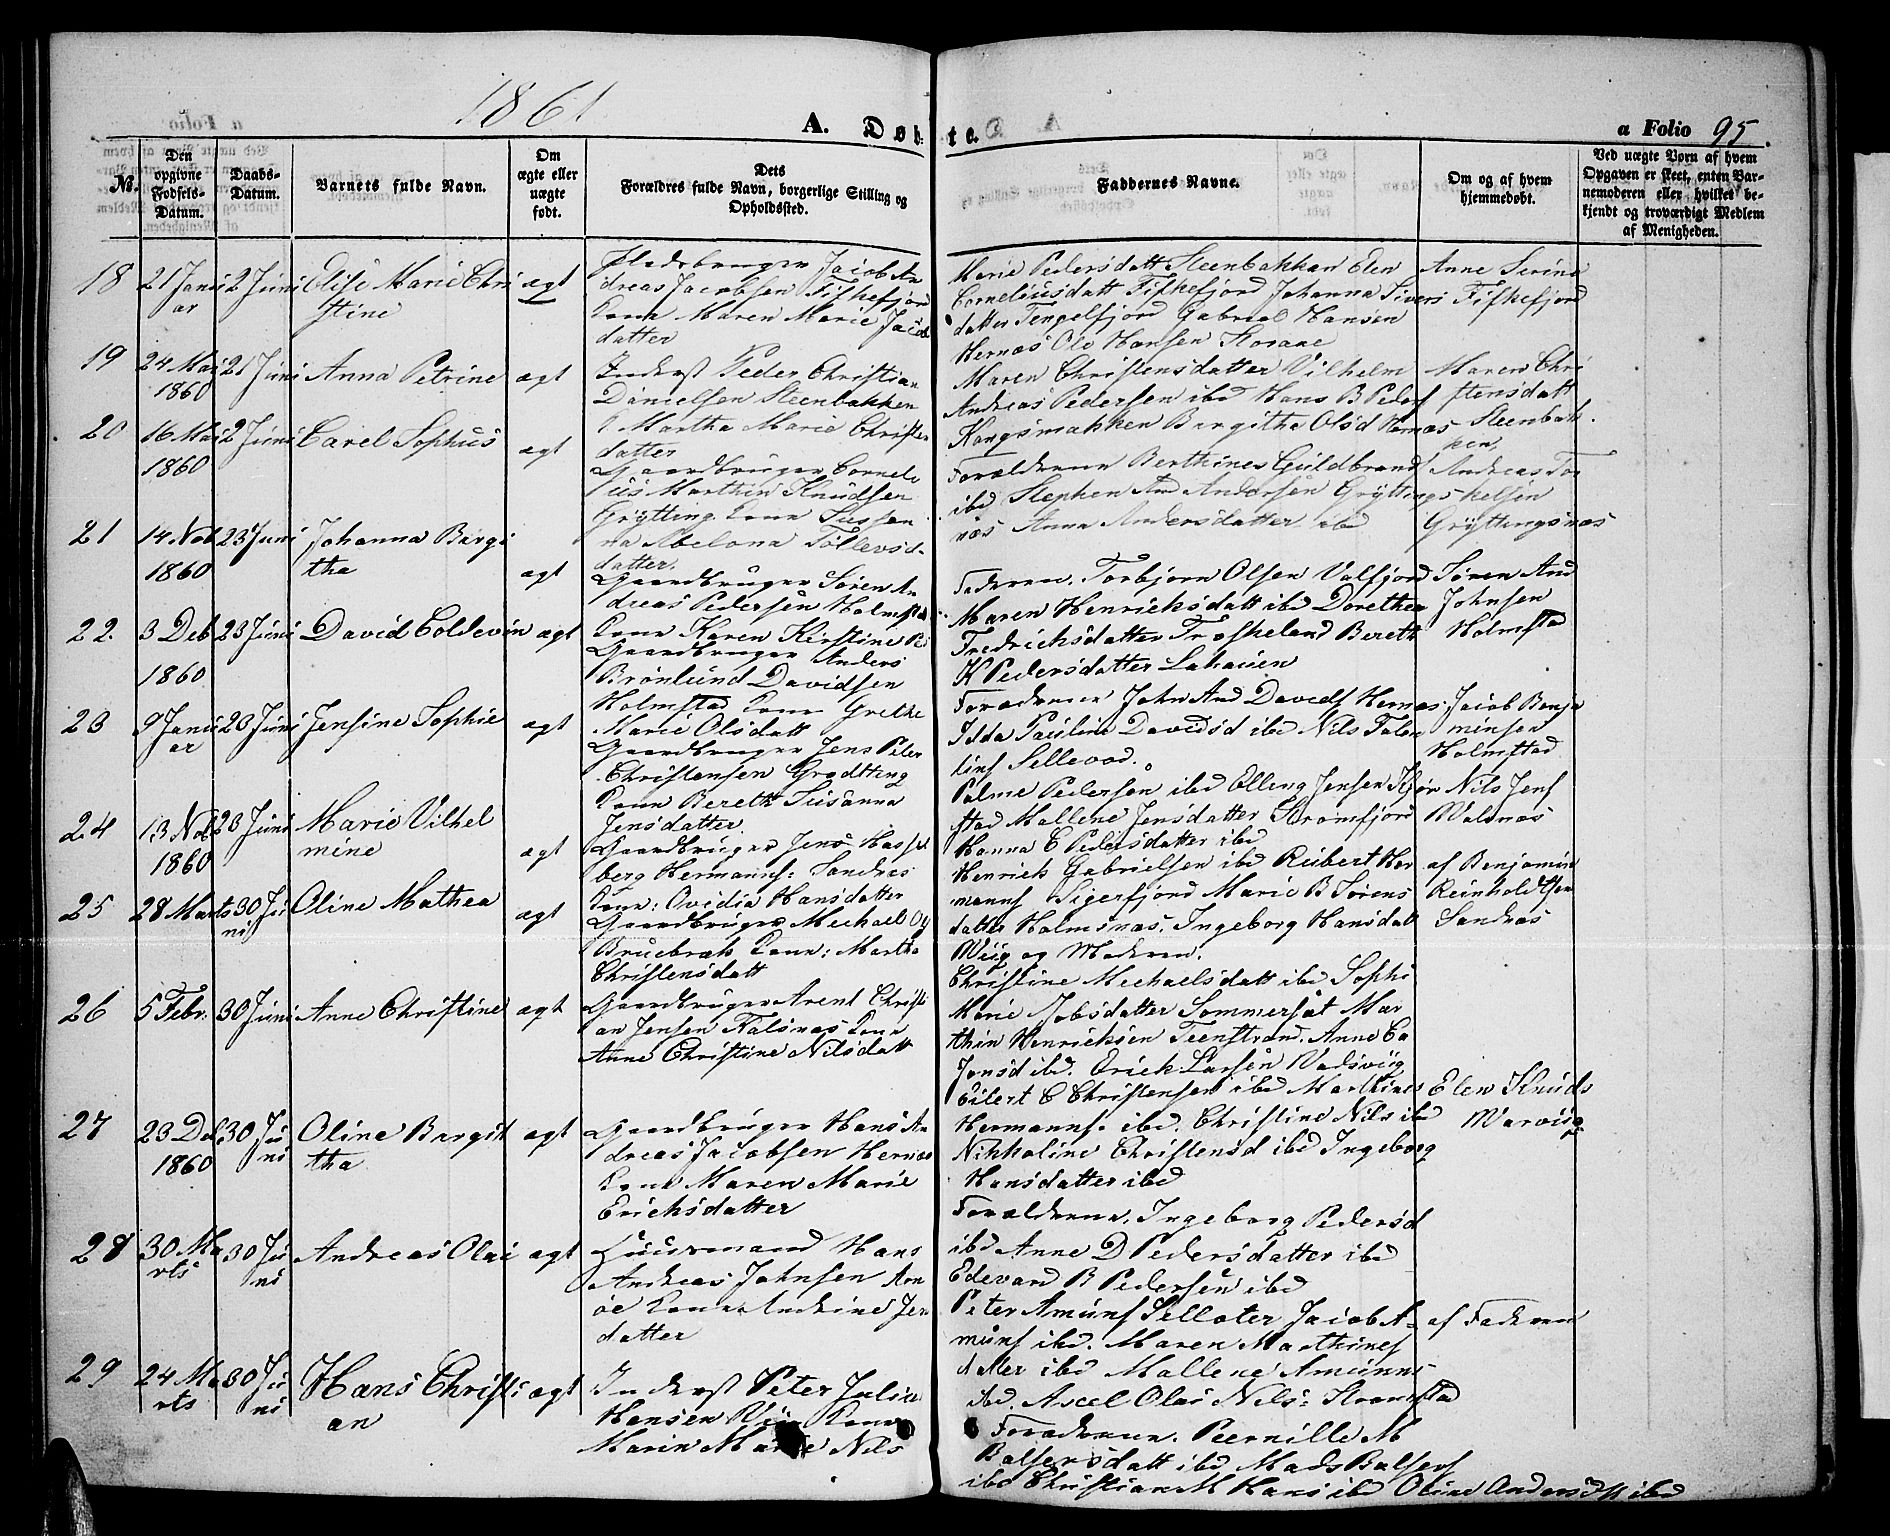 1861
A. Døb-
te.
a Folio 95.
No.
Den opgivne Fødsels-Datum.
Daabs-Datum.
Barnets fulde Navn.
Om ægte eller uægte født.
Dets Forældres fulde Navn, borgerlige Stilling og Opholdssted.
Faddernes Navne.
Om og af hvem hjemmedøbt.
Ved uægte Børn af hvem Opgaven er skeet, enten Barnemoderen eller hvilket bekjendt og troværdigt Medlem af Menigheden.
18 21 Janu 2 Juni Elise Marie Chri ægt
ar stine
Jacob An
dreas Jacobsen Fiskefjord
Kone Maren Marie Jacob
datter
Marie Pedersdatt Steenbakken Elen
Corneliusdatt Fiskefjord Johanna Sivers
datter Tengelfjord Gabriel Hansen
Hernæs Ole Hansen Slorane
Anne Serine
Fiskefjord
19 24 Mai 21 Juni Anna Petrine ægt
1860
Inderst Peder Christian
Danielsen Steenbakken
Martha Marie Christen
datter
Maren Christensdatter Vilhelm
Andreas Pedersen ibd Hans B Peders
Kongsmakken Birgitha Olsd Hernæs
Maren Chri
stensdatt
Steenbak
ken,
20 16 Mai 2 Juni Carel Sophus ægt
1860
Gaardbruger Corneli
us Marthin Knudsen
Grytting Kone Sussan
na Abelona Tollevsd
datter.
Forældrene Berthines Guldbrands
ibd Stephen And Andersen Gryttings
næs Anna Andersdatter ibd
Andreas Tor
kelsen
Gryttingsnæs
21 14 Nob 23 Juni Johanna Birgi
1860 tha ægt
Gaardbruger Søren An
dreas Pedersen Holmstad
Kone Karen Kirstine Pe
Faderen. Torbjørn Olsen Valfjord
Maren Henricksdatt ibd Dorethea
Fredricksdatter Træskeland Bereth
K Pedersdatter Lahauen
Søren And
Johnsen
Holmstad
22. 3 Deb 23 Juni David Coldevin ægt
1860
Gaardbruger Anders
Brønlund Davidsen
Holmstad Kone Grethe
Marie Olsdatt
Forældrene John And Davids Hernæs
Idda Pauline Davidsd ibd Nils Falen
tins Sellevod.
Jacob Benja
minsen
Holmstad
23 9 Janu 23 Juni Jensine Sophie ægt
ar
Gaardbruger Jens Peter
Christensen Grødtting
Kone Bereth Susanna
Jensdatter
Palme Pedersen ibd Elling Jensen Kjør
stad Mallene Jensdatter Strømfjord
Hanna C Pedersdatter ibd
Nils Jens
Waldnæs
24 13 Nob 23 Juni Marie Vilhel
1860 mine ægt
Gaardbruger Jens Hassel
berg Hermanns: Sandnæs
Kone: Ovidia Hansdatter
Henrich Gabrielsen ibd Reibert Her
manns Sigerfjord Marie B Sørens
datter Holmsnæs. Ingeborg Hansdatt
Wiig og Moderen.
af Benjamin
Reinholdtsen
Sandnæs
25 28 Marts 30 Ju Oline Mathea ægt
ni
Gaardbruger Mechael Ols
Bruebræk Kone: Martha
Christensdatt
Christine Mechaelsdatt ibd Sophi
Marie Jobsdatter Sommersæt Mar
thin Henricksen Teenstrand. Anne Ca
Jensd ibd. Erick Larsen Vadsviig
26 5 Febr: 30 Juni Anne Christine ægt
Gaardbruger Arent Christi
an Jensen Falsnæs Kone
Anne Christine Nilsdatt
Eilert C Christensen ibd Marthines
Hermanns. ibd. Christine Nils ibd
Nikkoline Christensd ibd Ingeborg
Hansdatter ibd
Elen Knuds
Warviig
27 23 Deb 30 Ju Oline Birgit ægt
1860 ni tha
Gaardbruger Hans An
dreas Jacobsen Hernæs
Kone Maren Marie
Ericksdatter
Forældrene, Ingeborg Pedersd
ibd Anne D Pedersdatter ibd
Edevard B Pedersen ibd
28 30 Ma 30 Ju Andreas Olai ægt
rts ni
Huusmand Hans
Andreas Johnsen Arn
øe Kone Andrine Jen
datter
Peter Amuns Selloter Jacob A-
muns ibd. Maren Mathines
datter ibd Mallene Amunns
ibd. Axcel Olai Nils: Strømstad
af Faderen
29 24 Ma 30 Ju Hans Christi ægt
rts ni an
Inderst Peter Julin
Hansen Kone
Marin Marie Nils
Forældrene. Peernille M
Balsersdatt ibd Mads Balsers
ibd Christian M Hans ibd Oline Andersdtt ibd